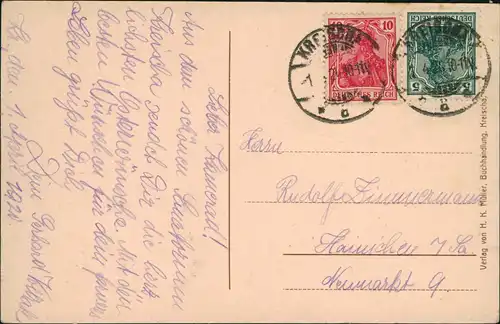 Lieber Kamerad!
Aus dem schönen Sanatorium
Kreischa sendet Dir die herz-
lichsten Osterwünsche. Mit den
besten Wünschen für dein ferneres
Leben grüßt Dich
Dein
Kr., den 1. April 1920.
KREISCHA
10
DEUTSCHES REICH
KREISCHA
5 5
DEUTSCHES REICH
Herrn
Rudolf Zimmermann
Hainichen i/Sa.
Neumarkt 9.
Verlag von H. H. Müller, Buchhandlung, Kreischa.